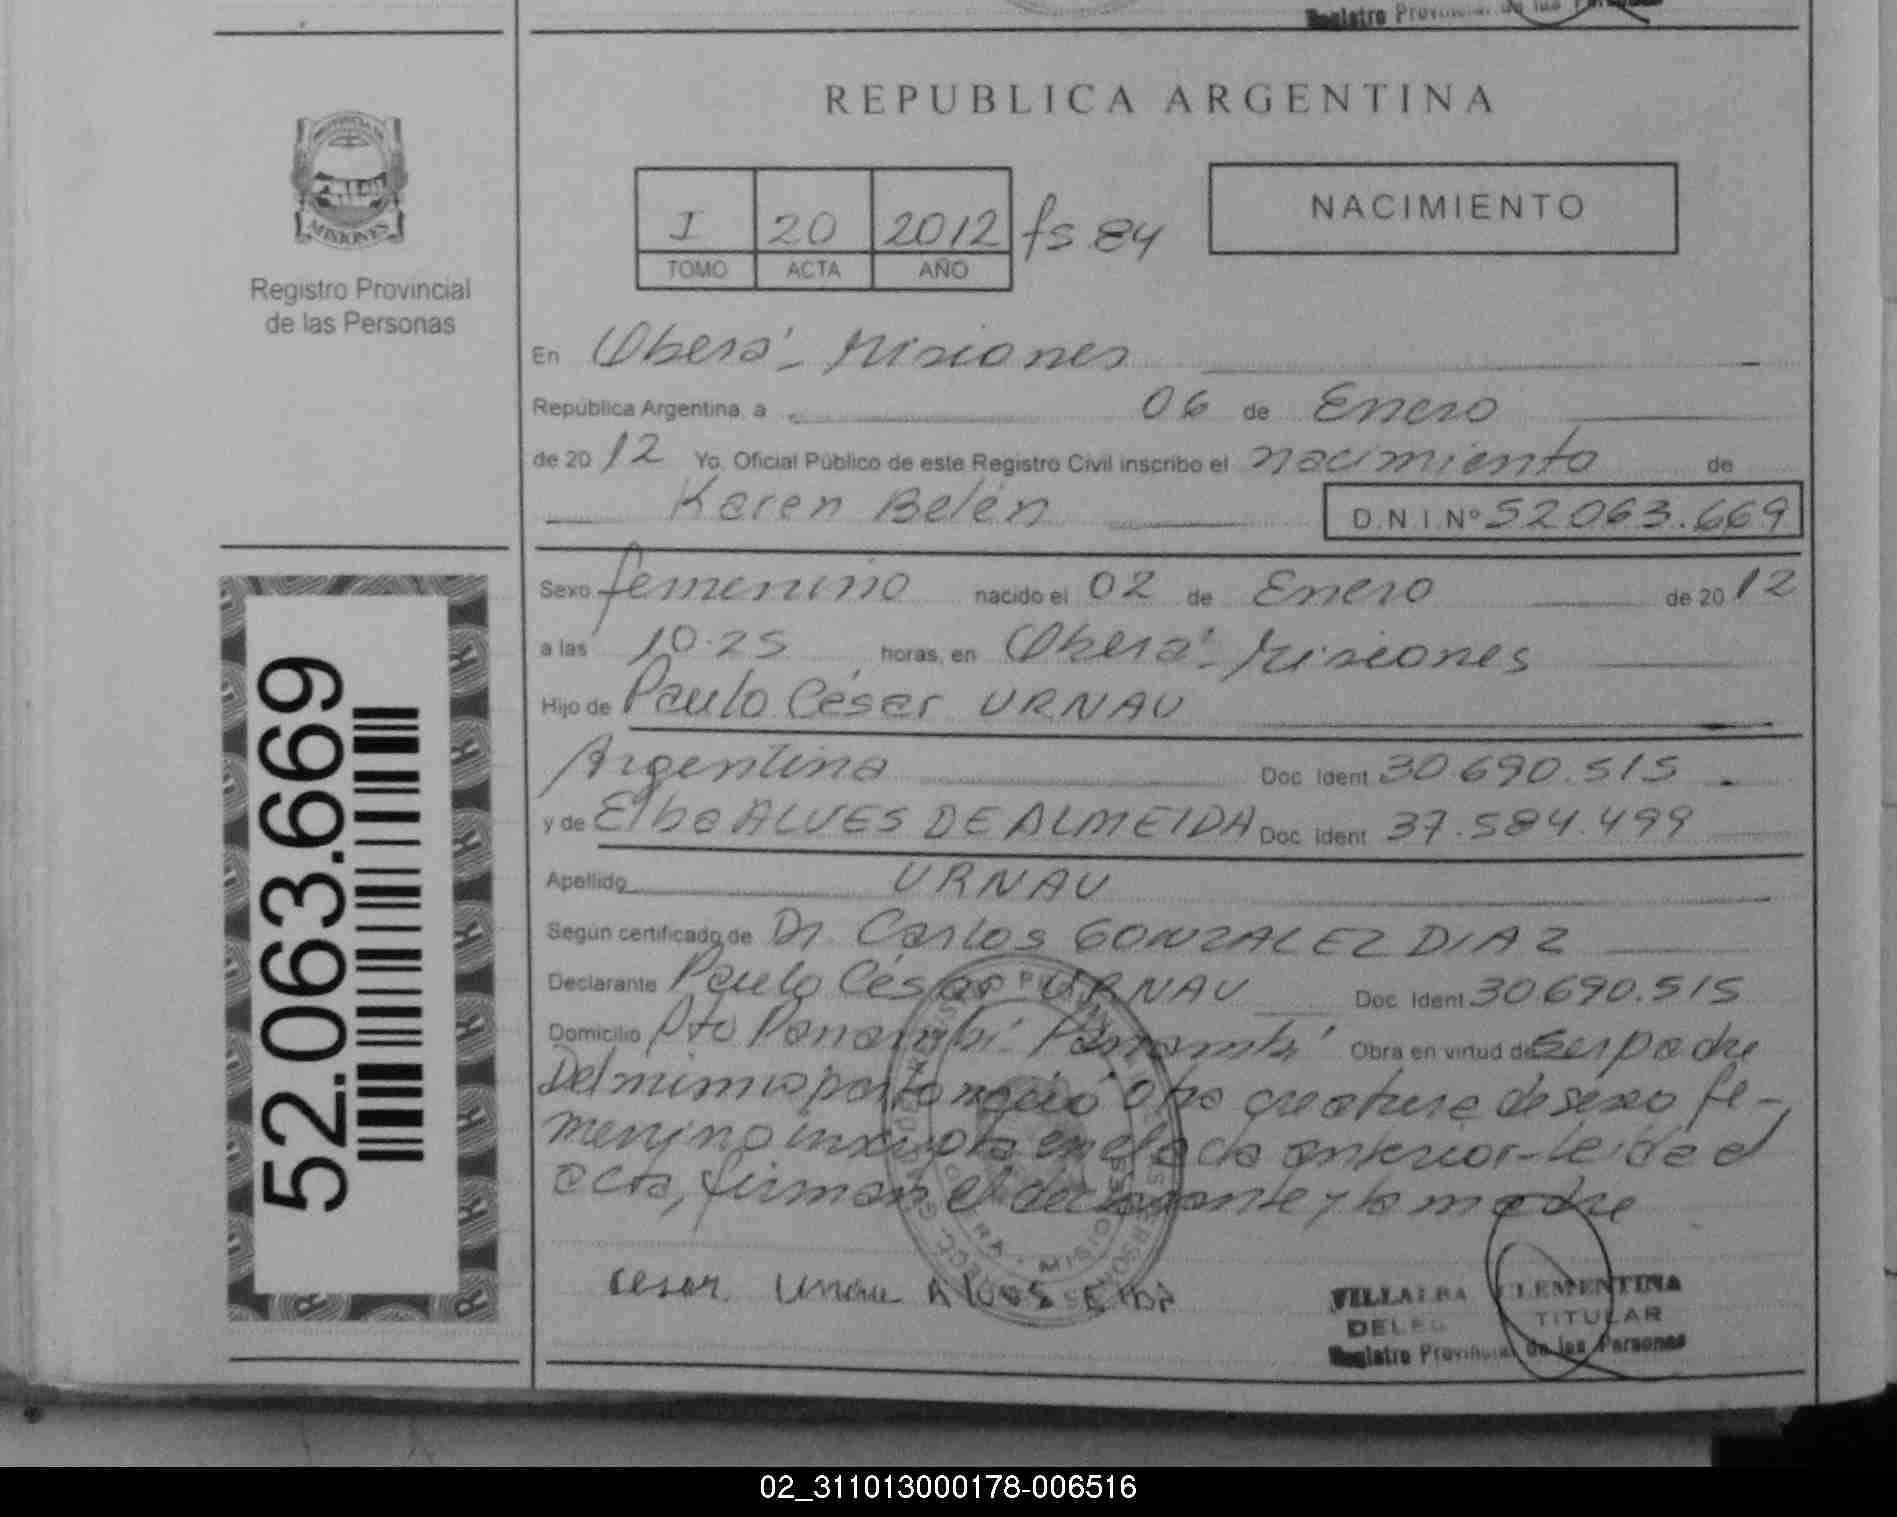 Registro Provincial de las Personas
REPUBLICA ARGENTINA
PROVINCIA DE
MISIONES
Registro Provincial
de las Personas
I 20 2012 fs 84
TOMO ACTA AÑO
NACIMIENTO
En Oberá - Misiones
República Argentina, a 06 de Enero
de 2012 Yo, Oficial Público de este Registro Civil inscribo el nacimiento de
Karen Belén D.N.I.Nº 52063.669
Sexo femenino nacido el 02 de Enero de 2012
a las 10.25 horas, en Oberá - Misiones
Hijo de Paulo César URNAU
Argentina Doc. Ident. 30690.515
y de Elba ALVES DE ALMEIDA Doc. Ident. 37.584.499
Apellido URNAU
Según certificado de Dr. Carlos GONZALEZ DIAZ
Declarante Paulo César URNAU Doc. Ident. 30690.515
Domicilio Pto Panambí - Panambí Obra en virtud de Ser padre
Del mismo parto nació otra creatura de sexo fe-
menino inscripta en el acta anterior - Leída el
acta, firman el declarante y la madre
cesar Urnau Alves Elba
VILLALBA CLEMENTINA
TITULAR
Registro Provincial de las Personas
52.063.669
02_311013000178-006516